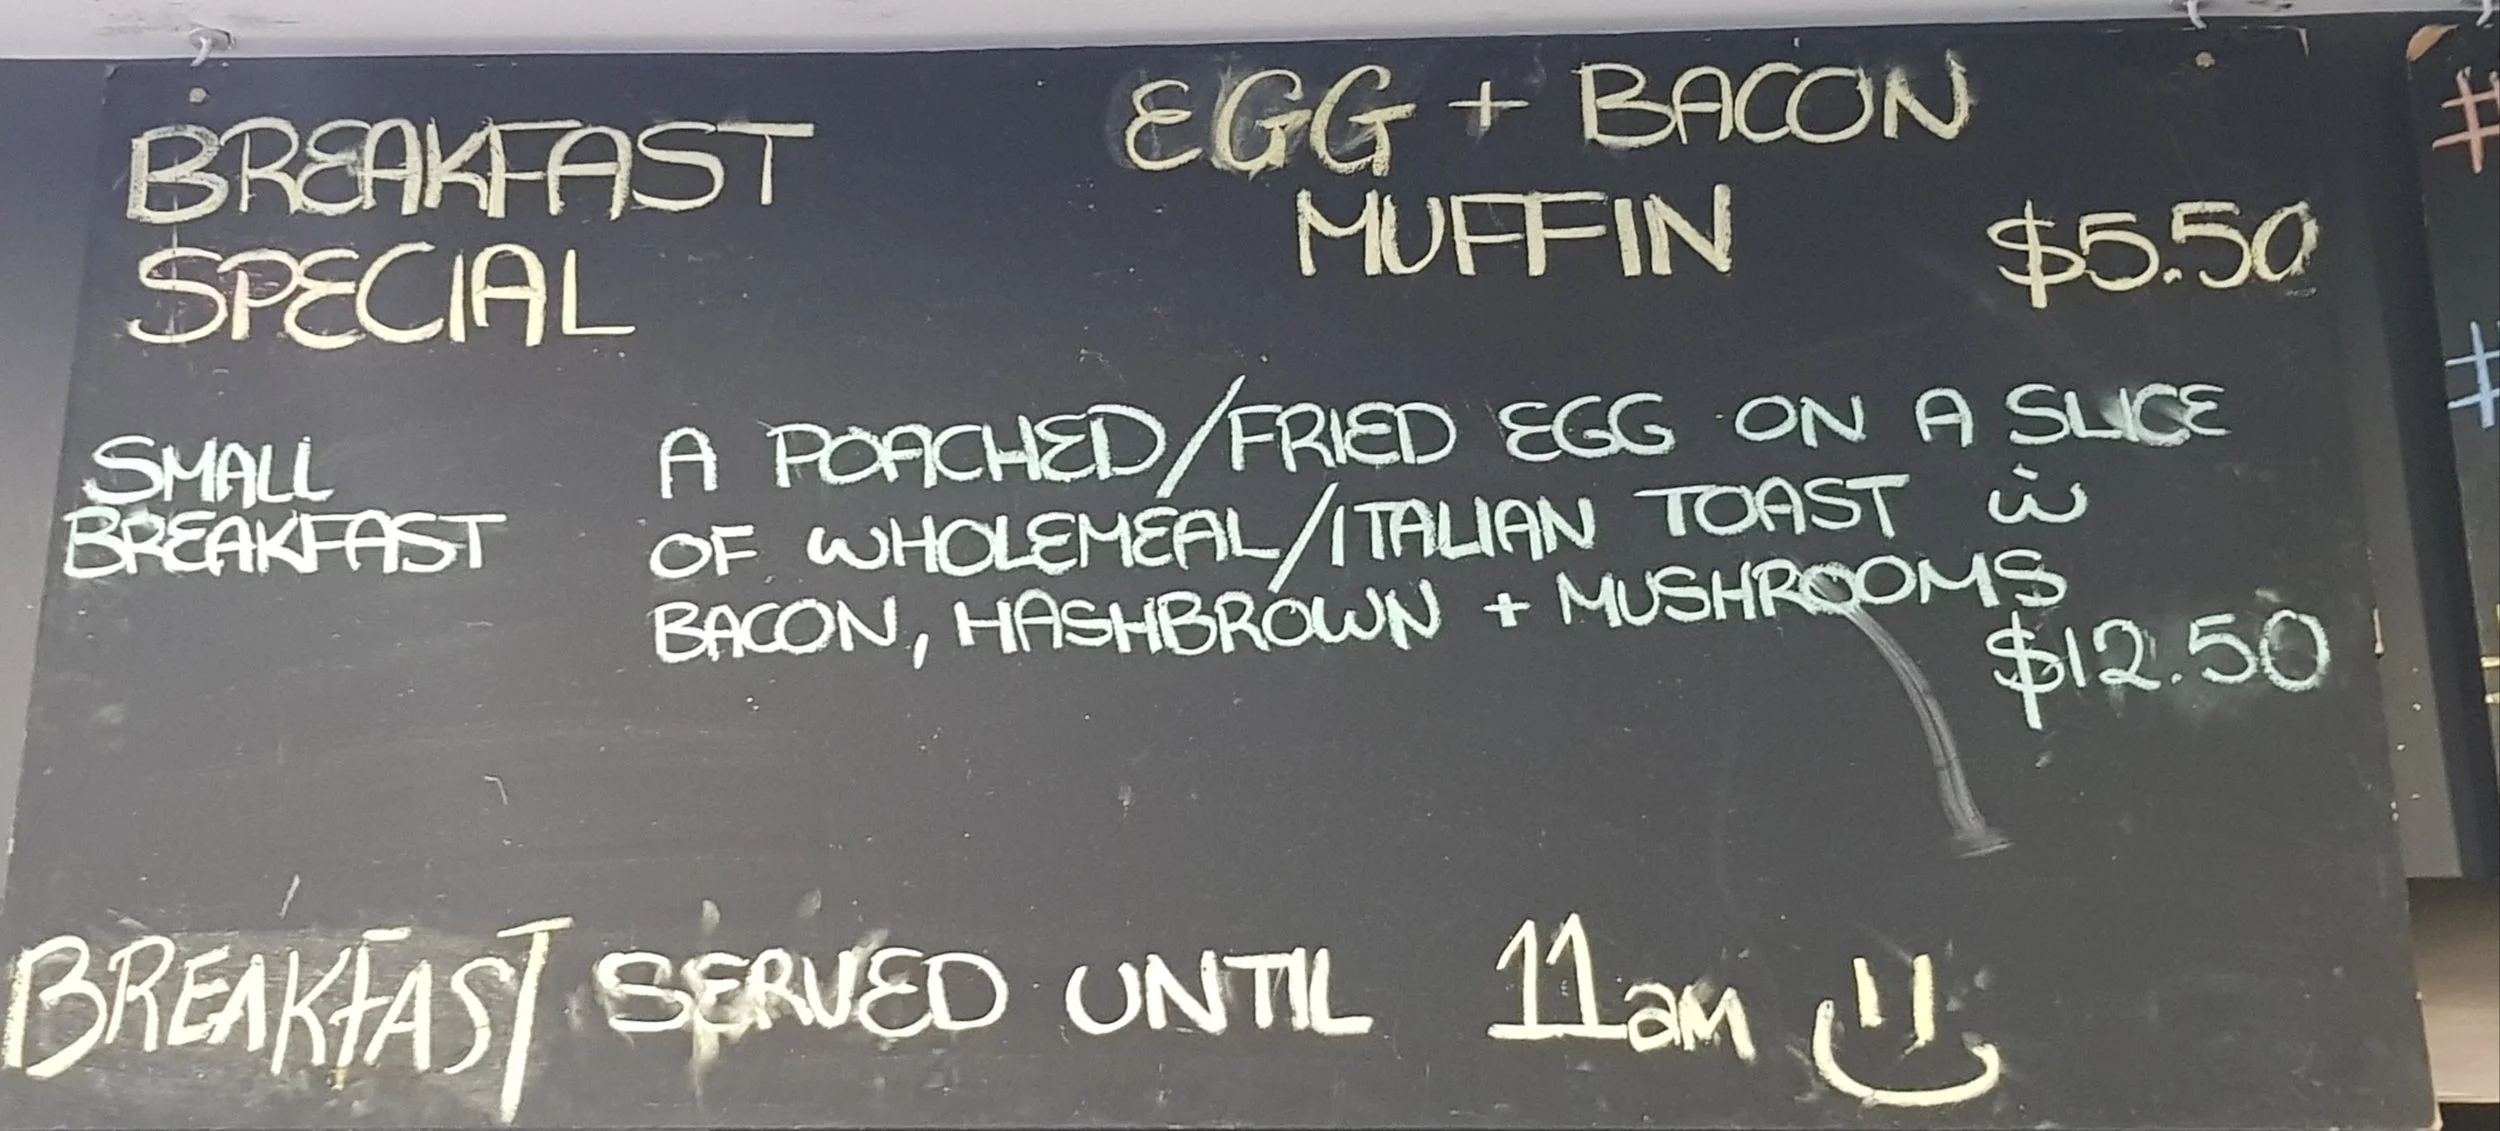 BREAKFAST
SPECIAL
EGG + BACON
MUFFIN
$5.50
SMALL
BREAKFAST
A POACHED/FRIED EGG ON A SLICE
OF WHOLEMEAL/ITALIAN TOAST ẇ
BACON, HASHBROWN + MUSHROOMS
$12.50
BREAKFAST SERVED UNTIL 11am
#
#